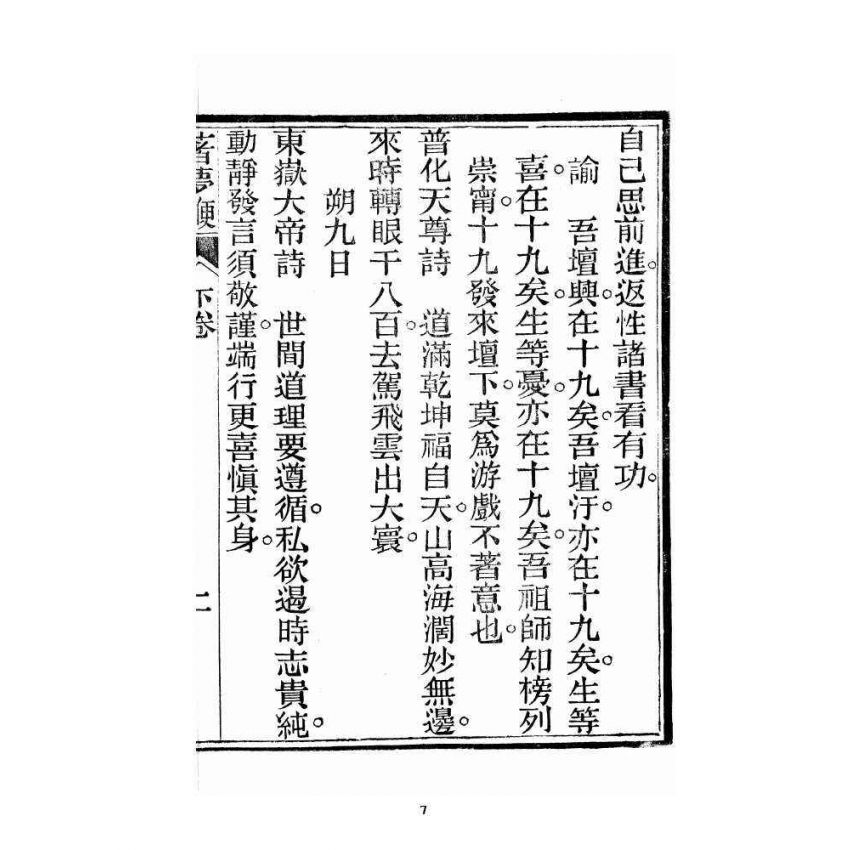 自己思前進。返性諸書看有功。
諭　吾壇興。在十九矣。吾壇汙。亦在十九矣。生等
喜。在十九矣。生等憂。亦在十九矣。吾祖師知榜列
崇甯。十九發來壇下。莫爲游戲不著意也。
普化天尊詩　道滿乾坤福自天。山高海濶妙無邊。
來時轉眼千八百。去駕飛雲出大寰。
朔九日
東嶽大帝詩　世間道理要遵循。私欲遏時志貴純。
動靜發言須敬謹。端行更喜愼其身。
下卷
二
7